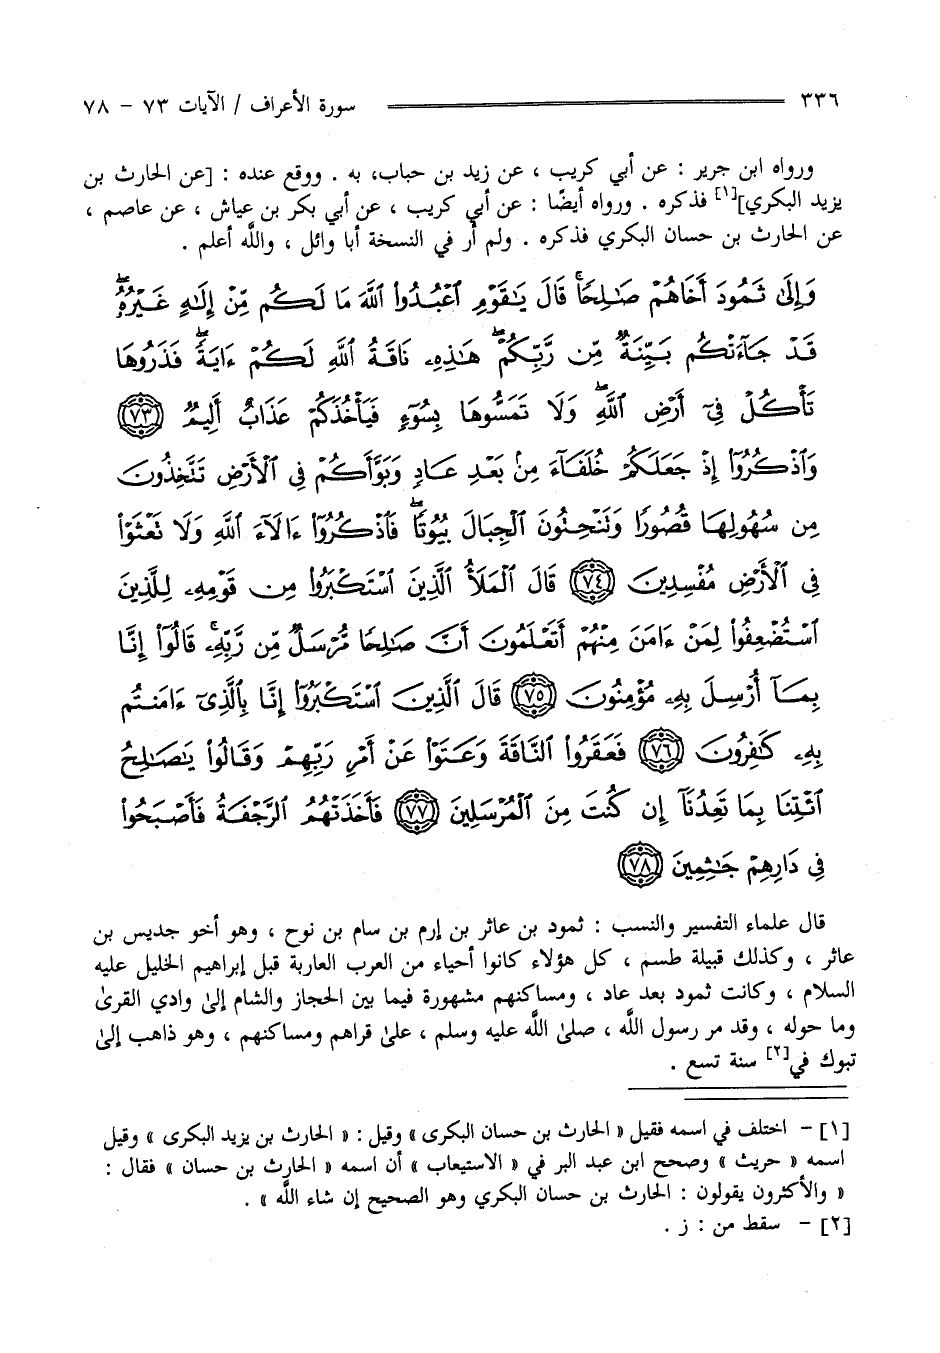 ٣٣٦ سورة الأعراف / الآيات ٧٣ - ٧٨
ورواه ابن جرير : عن أبي كريب ، عن زيد بن حباب، به . ووقع عنده : [عن الحارث بن
يزيد البكري][١] فذكره . ورواه أيضًا : عن أبي كريب ، عن أبي بكر بن عياش ، عن عاصم ،
عن الحارث بن حسان البكري فذكره . ولم أر في النسخة أبا وائل ، واللَّه أعلم .
وَإِلَىٰ ثَمُودَ أَخَاهُمْ صَٰلِحًاۗ قَالَ يَٰقَوْمِ ٱعْبُدُوا۟ ٱللَّهَ مَا لَكُم مِّنْ إِلَٰهٍ غَيْرُهُۥۖ
قَدْ جَآءَتْكُم بَيِّنَةٌ مِّن رَّبِّكُمْۖ هَٰذِهِۦ نَاقَةُ ٱللَّهِ لَكُمْ ءَايَةًۖ فَذَرُوهَا
تَأْكُلْ فِىٓ أَرْضِ ٱللَّهِۖ وَلَا تَمَسُّوهَا بِسُوٓءٍ فَيَأْخُذَكُمْ عَذَابٌ أَلِيمٌ ٧٣
وَٱذْكُرُوٓا۟ إِذْ جَعَلَكُمْ خُلَفَآءَ مِنۢ بَعْدِ عَادٍ وَبَوَّأَكُمْ فِى ٱلْأَرْضِ تَتَّخِذُونَ
مِن سُهُولِهَا قُصُورًا وَتَنْحِتُونَ ٱلْجِبَالَ بُيُوتًاۖ فَٱذْكُرُوٓا۟ ءَالَآءَ ٱللَّهِ وَلَا تَعْثَوْا۟
فِى ٱلْأَرْضِ مُفْسِدِينَ ٧٤ قَالَ ٱلْمَلَأُ ٱلَّذِينَ ٱسْتَكْبَرُوا۟ مِن قَوْمِهِۦ لِلَّذِينَ
ٱسْتُضْعِفُوا۟ لِمَنْ ءَامَنَ مِنْهُمْ أَتَعْلَمُونَ أَنَّ صَٰلِحًا مُّرْسَلٌ مِّن رَّبِّهِۦۚ قَالُوٓا۟ إِنَّا
بِمَآ أُرْسِلَ بِهِۦ مُؤْمِنُونَ ٧٥ قَالَ ٱلَّذِينَ ٱسْتَكْبَرُوٓا۟ إِنَّا بِٱلَّذِىٓ ءَامَنتُم
بِهِۦ كَٰفِرُونَ ٧٦ فَعَقَرُوا۟ ٱلنَّاقَةَ وَعَتَوْا۟ عَنْ أَمْرِ رَبِّهِمْ وَقَالُوا۟ يَٰصَٰلِحُ
ٱئْتِنَا بِمَا تَعِدُنَآ إِن كُنتَ مِنَ ٱلْمُرْسَلِينَ ٧٧ فَأَخَذَتْهُمُ ٱلرَّجْفَةُ فَأَصْبَحُوا۟
فِى دَارِهِمْ جَٰثِمِينَ ٧٨
قال علماء التفسير والنسب : ثمود بن عاثر بن إرم بن سام بن نوح ، وهو أخو جديس بن
عاثر ، وكذلك قبيلة طسم ، كل هؤلاء كانوا أحياء من العرب العاربة قبل إبراهيم الخليل عليه
السلام ، وكانت ثمود بعد عاد ، ومساكنهم مشهورة فيما بين الحجاز والشام إلىٰ وادي القرىٰ
وما حوله ، وقد مر رسول اللَّه ، صلىٰ اللَّه عليه وسلم ، علىٰ قراهم ومساكنهم ، وهو ذاهب إلىٰ
تبوك في[٢] سنة تسع .
[١] - اختلف في اسمه فقيل « الحارث بن حسان البكرى » وقيل : « الحارث بن يزيد البكرى » وقيل
اسمه « حريث » وصحح ابن عبد البر في « الاستيعاب » أن اسمه « الحارث بن حسان » فقال :
« والأكثرون يقولون : الحارث بن حسان البكري وهو الصحيح إن شاء اللَّه » .
[٢] - سقط من : ز .